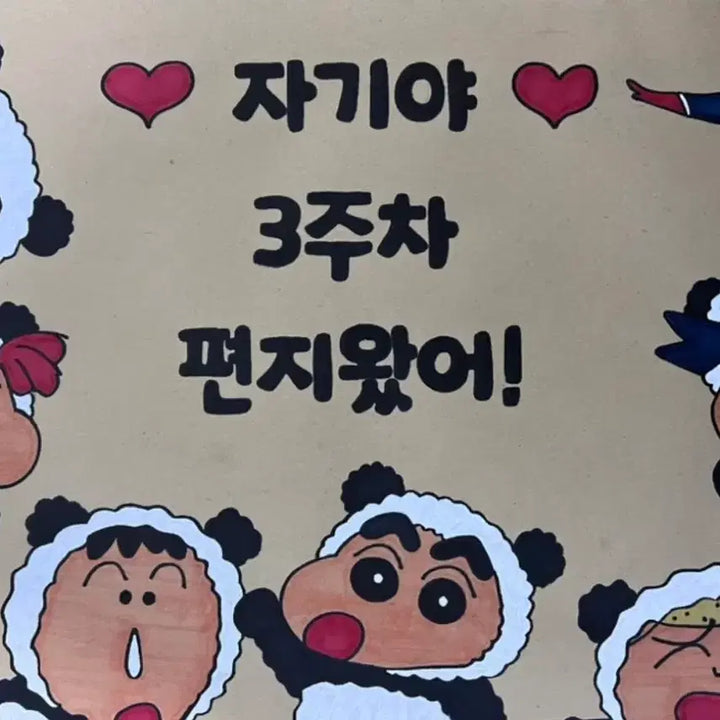 자기야
3주차
편지왔어!